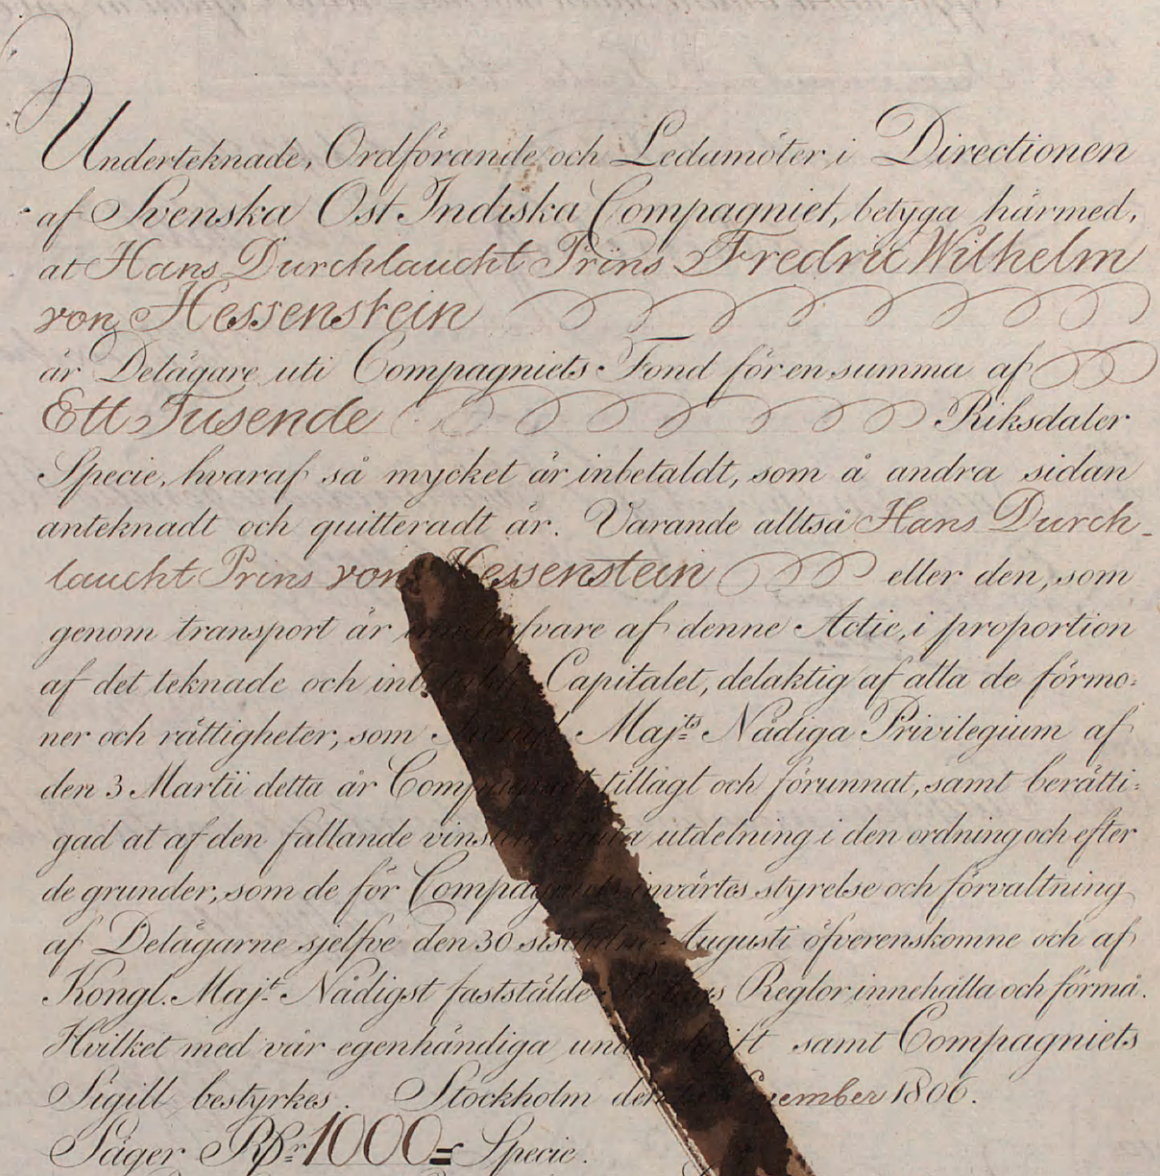 Underteknade, Ordförande och Ledamöter i Directionen
af Svenska Ost Indiska Compagniet, betyga härmed,
at Hans Durchlaucht Prins Fredric Wilhelm
von Hessenstein
är Delägare uti Compagniets Fond för en summa af
Ett Tusende Riksdaler
Specie, hvaraf så mycket är inbetaldt, som å andra sidan
anteknadt och quitteradt är. Varande alltså Hans Durch-
laucht Prins von Hessenstein eller den, som
genom transport är innehafvare af denne Actie, i proportion
af det teknade och inbetalde Capitalet, delaktig af alla de förmo:
ner och rättigheter, som Kongl. Maj:ts Nådiga Privilegium af
den 3 Martii detta år Compagniet tillagt och förunnat, samt berätti:
gad at af den fallande vinsten utdelning i den ordning och efter
de grunder, som de för Compagniets invärtes styrelse och förvaltning
af Delägarne sjelfve den 30 sistledne Augusti öfverenskomne och af
Kongl. Maj:t Nådigst faststälde Reglor innehålla och förmå.
Hvilket med vår egenhändiga underskrift samt Compagniets
Sigill bestyrkes. Stockholm den 1806.
Säger Rdr 1000 = Specie.